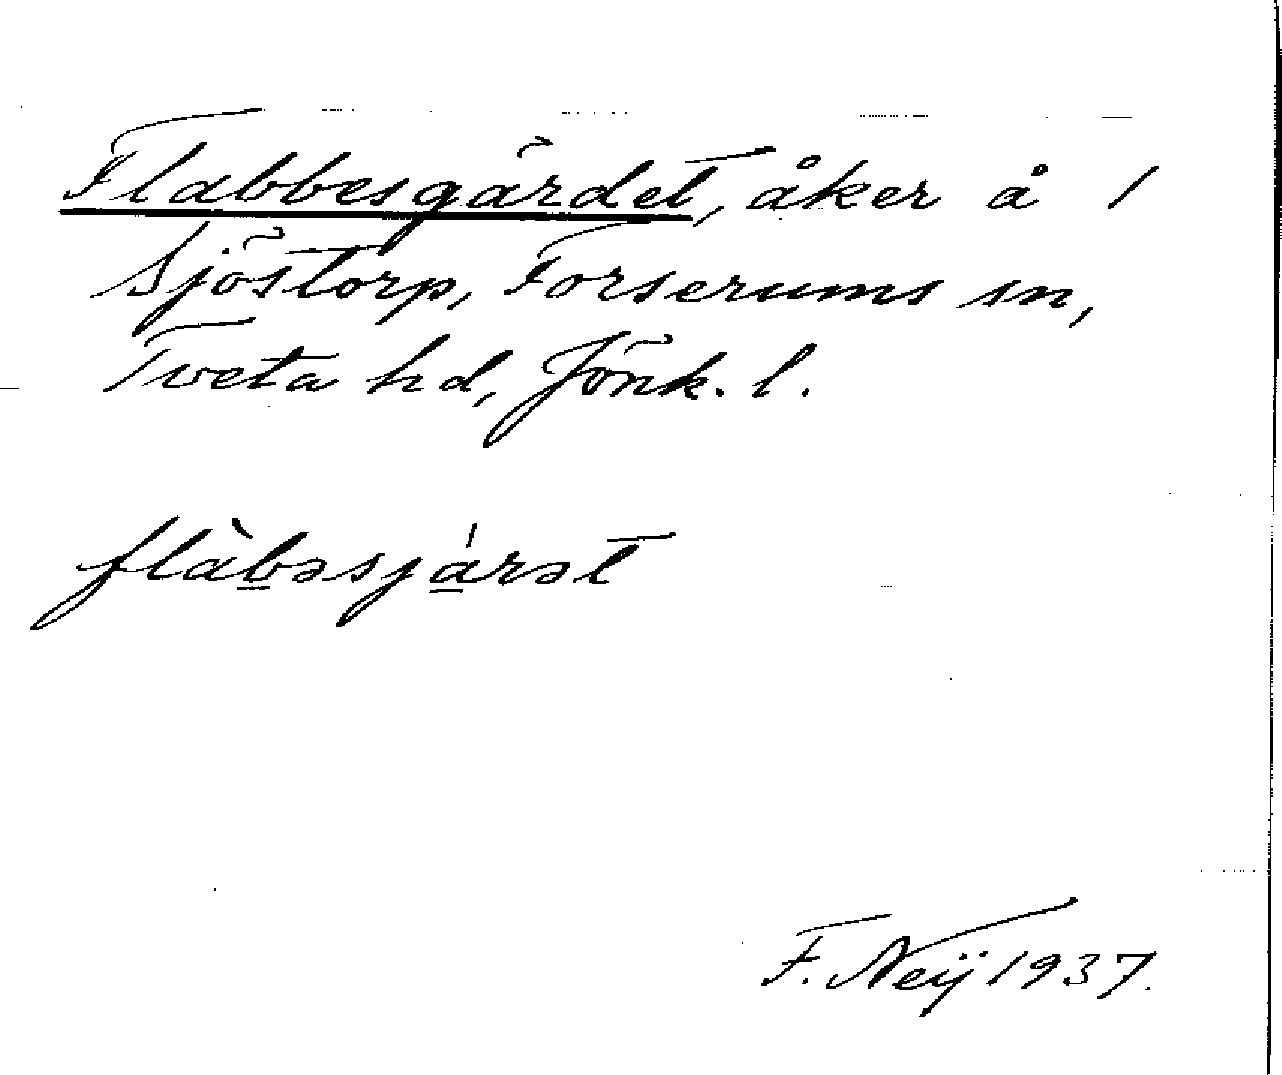 Flabbesgärdet, åker å 1
Sjöstorp, Forserums sn,
Tveta hd, Jönk. l.
flàb̲əsjá̲rət
F. Neij 1937.